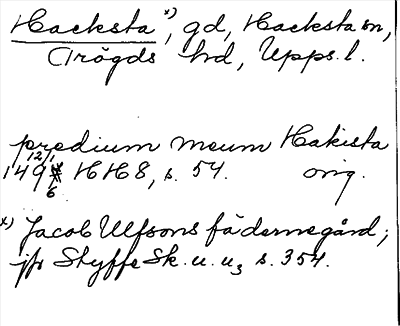 Hacksta x), gd, Hacksta sn,
Trögds hd, Upps. l.
predium meum Hakista
12/1
149 HH 8, s. 54. orig.
6
x) Jacob Ulfsons fädernegård;
jfr Styffe Sk. u. u3 s. 354.